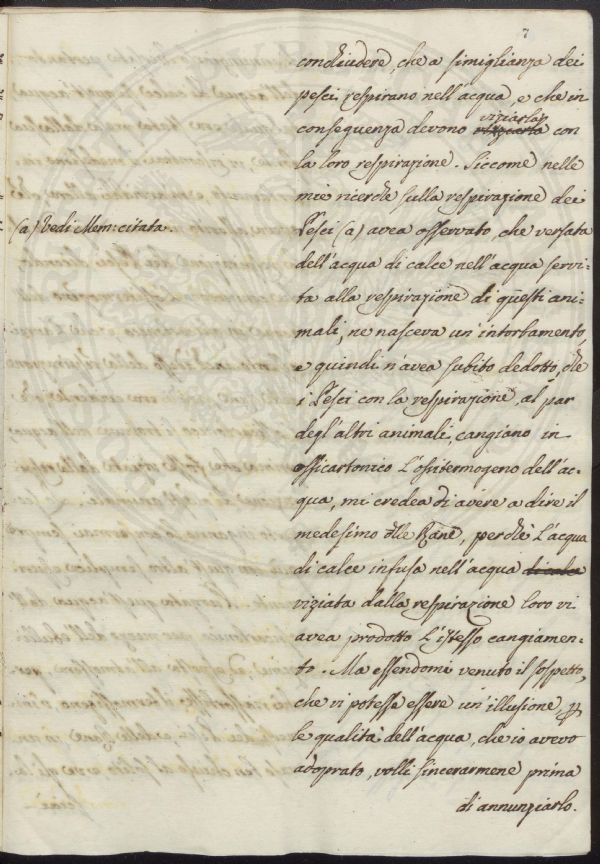 7
conchiudere, che a simiglianza dei
pesci respirano nell'acqua, e che in
viziarla
conseguenza devono con
la loro respirazione. Siccome nelle
mie ricerche sulla respirazione dei
(a) Vedi Mem: citata.
Pesci (a) avea osservato, che versata
dell'acqua di calce nell'acqua servi-
ta alla respirazione di questi ani-
mali, ne nasceva un'intorbamento,
e quindi n'avea subito dedotto, che
i Pesci con la respirazione, al par
degl'altri animali, cangiano in
ossicarbonico l'ossitermogeno dell'ac-
qua, mi credea di avere a dire il
medesimo delle Rane, perchè l'acqua
di calce infusa nell'acqua di calce
viziata dalla respirazione loro vi
avea prodotto l'istesso cangiamen-
to. Ma essendomi venuto il sospetto,
che vi potesse essere un'illusione,
le qualità dell'acqua, che io avevo
adoprato, volli sincerarmene prima
di annunziarlo.